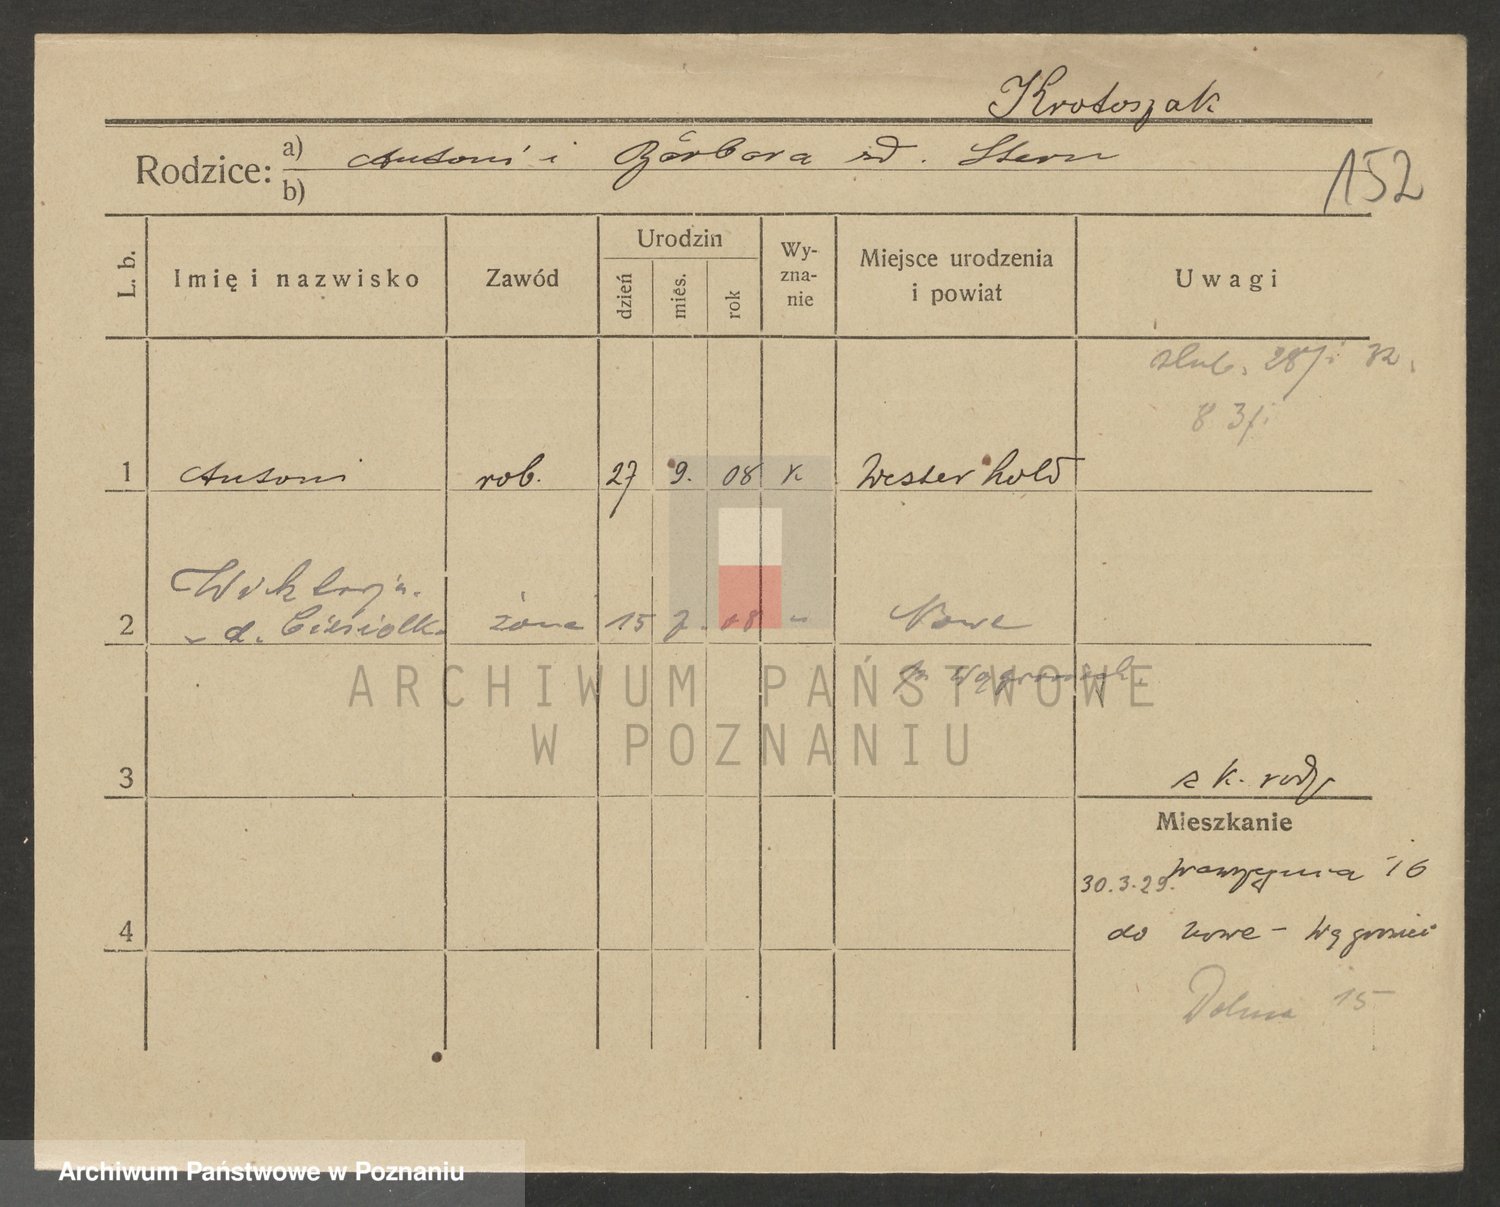 Krotoszak
Rodzice: a) Antoni i Barbara zd. Stern
b)
152
L. b.
Imię i nazwisko
Zawód
Urodzin
dzień
mieś.
rok
Wy-
zna-
nie
Miejsce urodzenia
i powiat
Uwagi
ślub. 28/i 32.
8 3/i
1 Antoni rob. 27 9. 08 k Westerhold
Wiktorja
2 d. Ciesiolka żona 15 7. 08 " Nowe
ARCHIWUM PAŃSTWOWE
W POZNANIU
3
z k. rodz
Mieszkanie
30.3.29. Wawrzyńca 16
4
do Nowe - Wągrowiec
Dolna 15
Archiwum Państwowe w Poznaniu